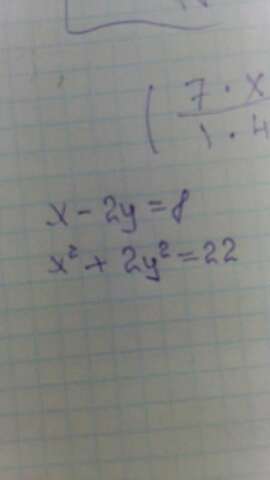 ( 7 · x
1 · 4
x - 2y = 8
x² + 2y² = 22